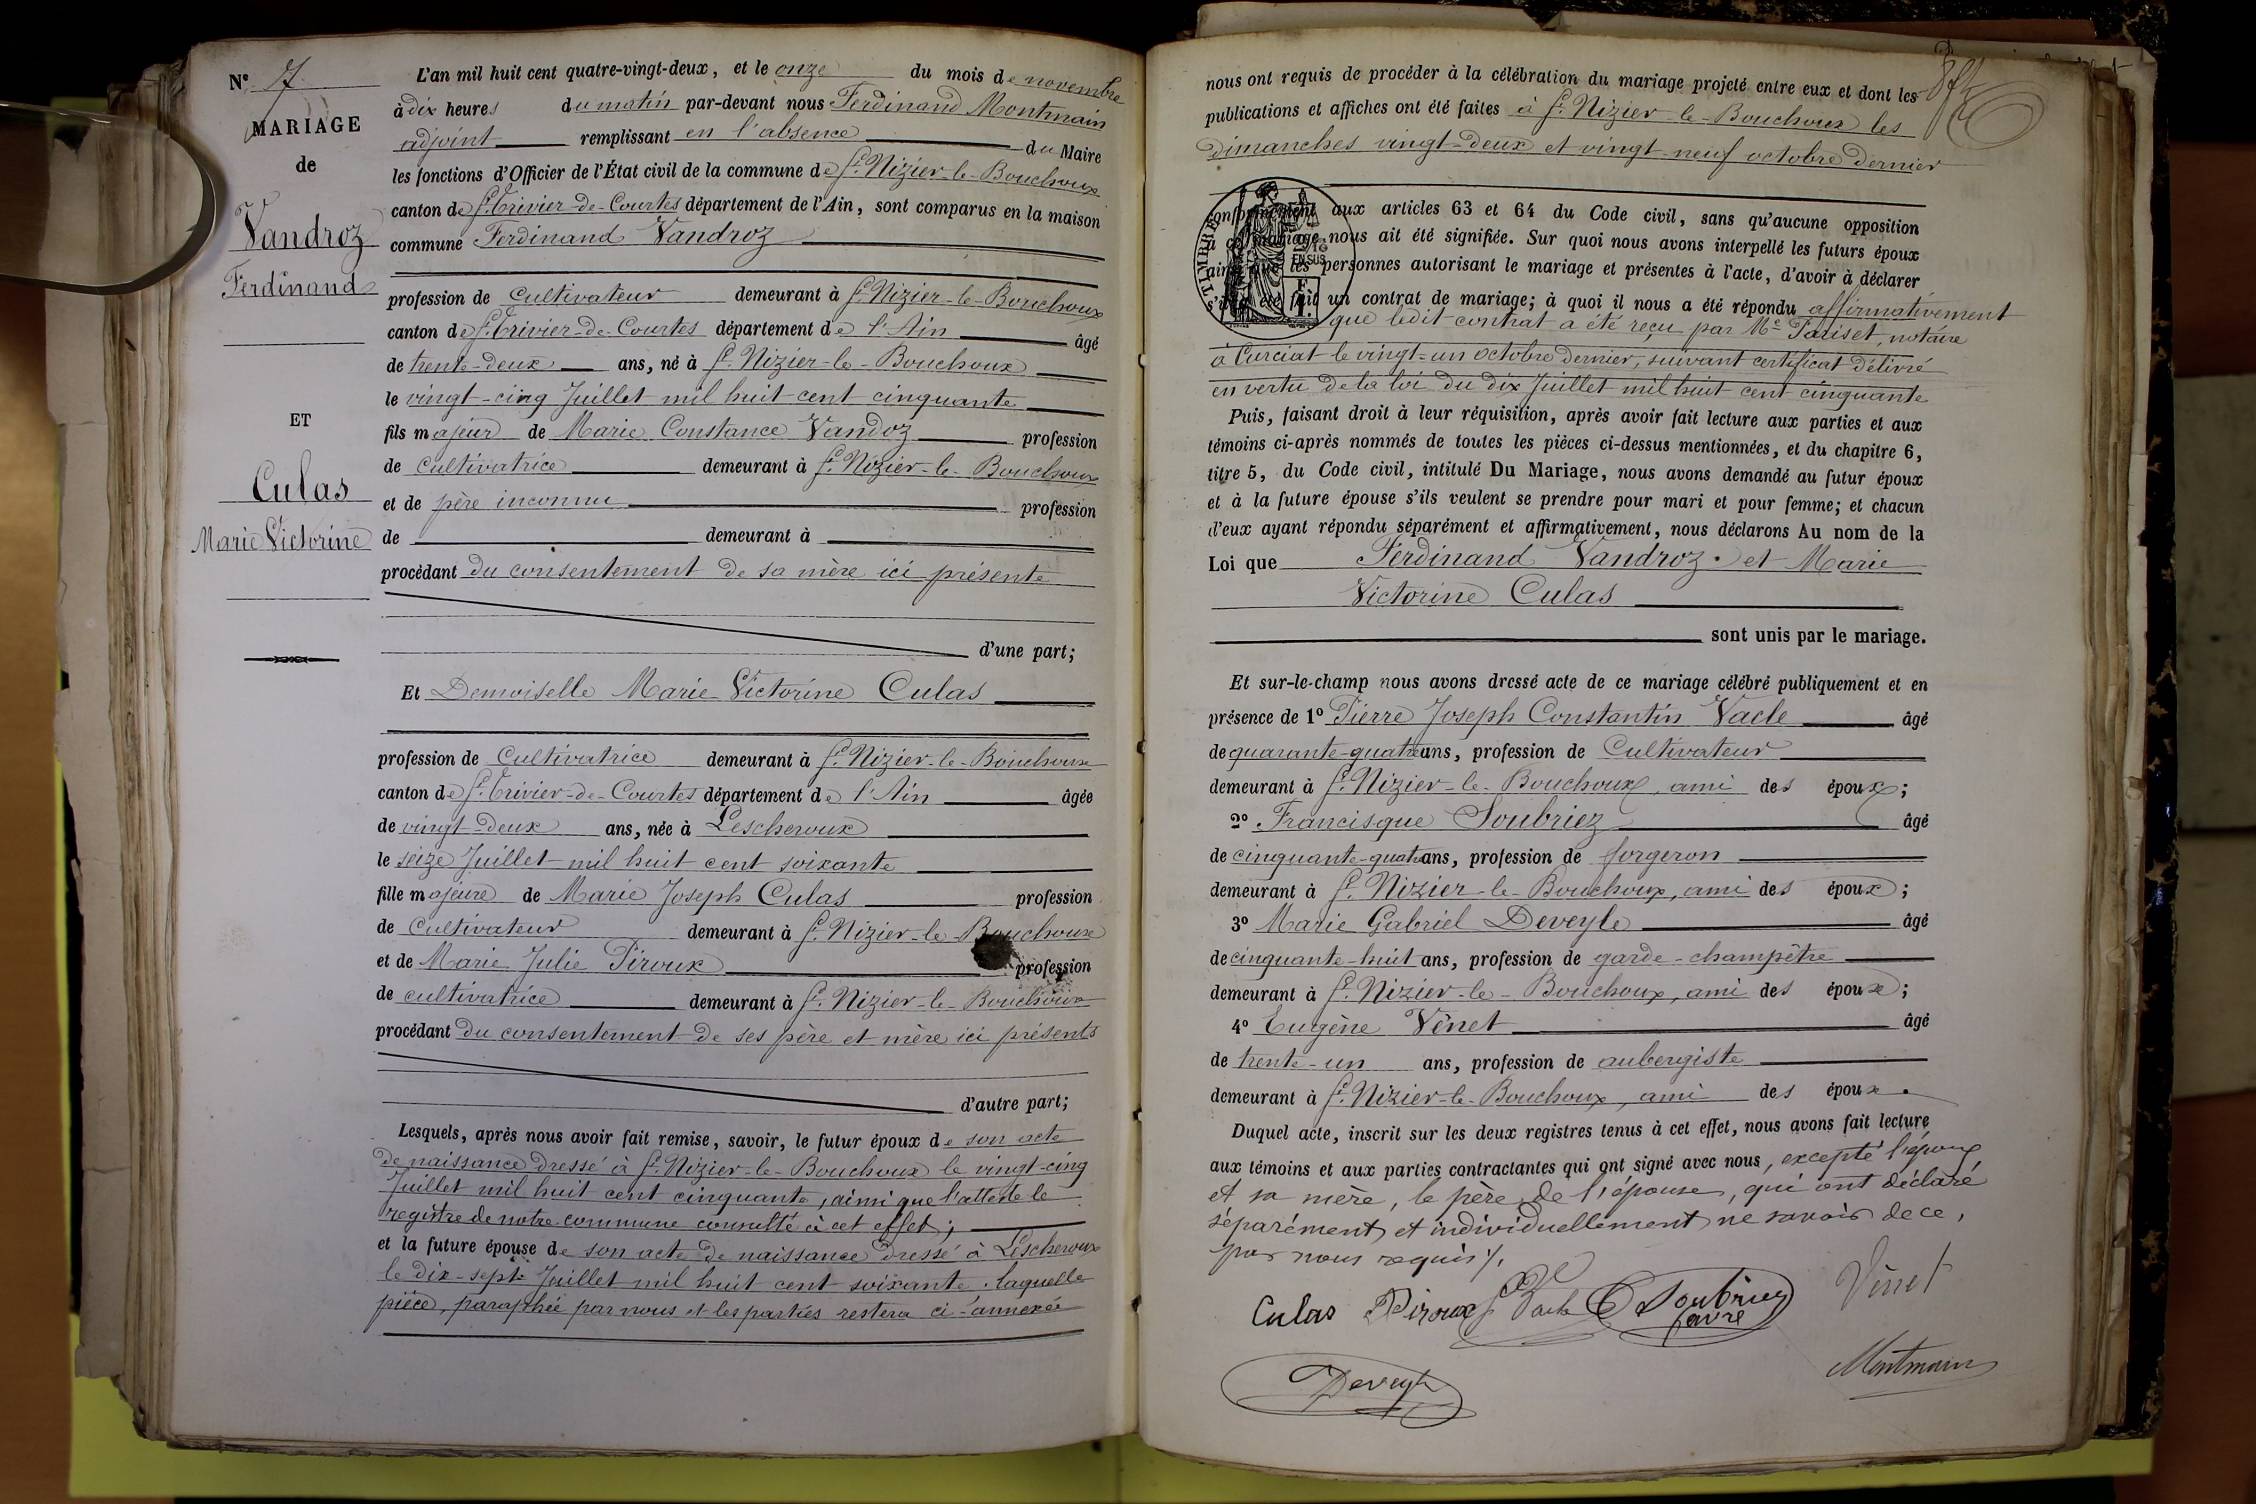 N° 7
MARIAGE
de
Vandroz
Ferdinand
ET
Culas
Marie Victorine
L'an mil huit cent quatre-vingt-deux, et le onze du mois de novembre
à dix heures du matin par-devant nous Ferdinand Montmain
adjoint remplissant en l'absence du Maire
les fonctions d'Officier de l'État civil de la commune de St Nizier-le-Bouchoux
canton de St Trivier-de-Courtes département de l'Ain, sont comparus en la maison
commune Ferdinand Vandroz
profession de Cultivateur demeurant à St Nizier-le-Bouchoux
canton de St Trivier-de-Courtes département de l'Ain âgé
de trente-deux ans, né à St Nizier-le-Bouchoux
le vingt-cinq Juillet mil huit cent cinquante
fils majeur de Marie Constance Vandoz profession
de cultivatrice demeurant à St Nizier-le-Bouchoux
et de père inconnu profession
de demeurant à
procédant du consentement de sa mère ici présente
d'une part;
Et Demoiselle Marie-Victorine Culas
profession de Cultivatrice demeurant à St Nizier-le-Bouchoux
canton de St Trivier-de-Courtes département de l'Ain âgée
de vingt-deux ans, née à Lescheroux
le seize Juillet mil huit cent soixante
fille majeure de Marie Joseph Culas profession
de cultivateur demeurant à St Nizier-le-Bouchoux
et de Marie Julie Piroux profession
de cultivatrice demeurant à St Nizier-le-Bouchoux
procédant du consentement de ses père et mère ici présents
d'autre part;
Lesquels, après nous avoir fait remise, savoir, le futur époux de son acte
de naissance dressé à St Nizier-le-Bouchoux le vingt-cinq
Juillet mil huit cent cinquante, ainsi que l'atteste le
registre de notre commune consulté à cet effet;
et la future épouse de son acte de naissance dressé à Lescheroux
le dix-sept Juillet mil huit cent soixante. laquelle
pièce, paraphée par nous et les parties restera ci-annexée
nous ont requis de procéder à la célébration du mariage projeté entre eux et dont les
publications et affiches ont été faites à St Nizier-le-Bouchoux les
dimanches vingt-deux et vingt-neuf octobre dernier
conformément aux articles 63 et 64 du Code civil, sans qu'aucune opposition
à ce mariage nous ait été signifiée. Sur quoi nous avons interpellé les futurs époux
ainsi que les personnes autorisant le mariage et présentes à l'acte, d'avoir à déclarer
s'il a été fait un contrat de mariage; à quoi il nous a été répondu affirmativement
que ledit contrat a été reçu par Me Pariset, notaire
à Curciat le vingt-un octobre dernier, suivant certificat délivré
en vertu de la loi du dix Juillet mil huit cent cinquante
TIMBRE
EN SUS
Puis, faisant droit à leur réquisition, après avoir fait lecture aux parties et aux
témoins ci-après nommés de toutes les pièces ci-dessus mentionnées, et du chapitre 6,
titre 5, du Code civil, intitulé Du Mariage, nous avons demandé au futur époux
et à la future épouse s'ils veulent se prendre pour mari et pour femme; et chacun
d'eux ayant répondu séparément et affirmativement, nous déclarons Au nom de la
Loi que Ferdinand Vandroz et Marie
Victorine Culas
sont unis par le mariage.
Et sur-le-champ nous avons dressé acte de ce mariage célébré publiquement et en
présence de 1° Pierre Joseph Constantin Vacle âgé
de quarante-quatre ans, profession de Cultivateur
demeurant à St Nizier-le-Bouchoux, ami des époux;
2° Francisque Soubriez âgé
de cinquante-quatre ans, profession de forgeron
demeurant à St Nizier-le-Bouchoux, ami des époux;
3° Marie Gabriel Deveyle âgé
de cinquante-huit ans, profession de garde-champêtre
demeurant à St Nizier-le-Bouchoux, ami des époux;
4° Eugène Vênet âgé
de trente-un ans, profession de aubergiste
demeurant à St Nizier-le-Bouchoux, ami des époux.
Duquel acte, inscrit sur les deux registres tenus à cet effet, nous avons fait lecture
aux témoins et aux parties contractantes qui ont signé avec nous, excepté l'époux
et sa mère, le père de l'épouse, qui ont déclaré
séparément et individuellement ne savoir de ce,
par nous requis
Culas Piroux Vacle Soubriez Vênet
favre
Montmain
Deveyle